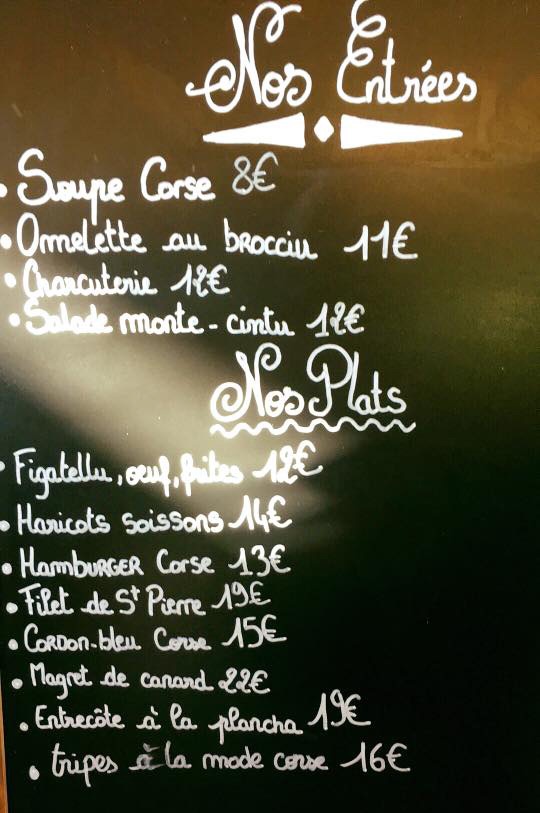 Nos Entrées
• Soupe Corse 8€
• Ommelette au brocciu 11€
• Charcuterie 12€
• Salade monte-cintu 12€
Nos Plats
• Figatellu, oeuf, frites 12€
• Haricots soissons 14€
• HamBURGER Corse 13€
• Filet de St Pierre 19€
• CORDON-bleu Corse 15€
• Magret de canard 22€
• Entrecôte à la plancha 19€
• tripes à la mode corse 16€